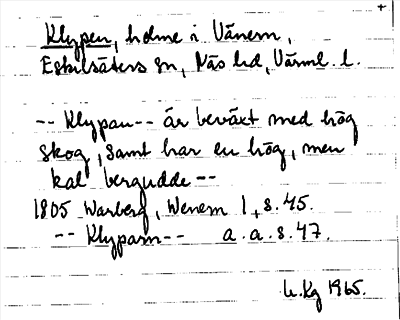 +
Klypen, holme i Vänern,
Eskilsäters sn, Näs hd, Värml. l.
-- Klypan -- är beväxt med hög
skog, samt har en hög, men
kal bergudde --
1805 Warberg, Wenern 1, s. 45.
-- Klyparn -- a. a. s. 47.
U. Kg 1965.